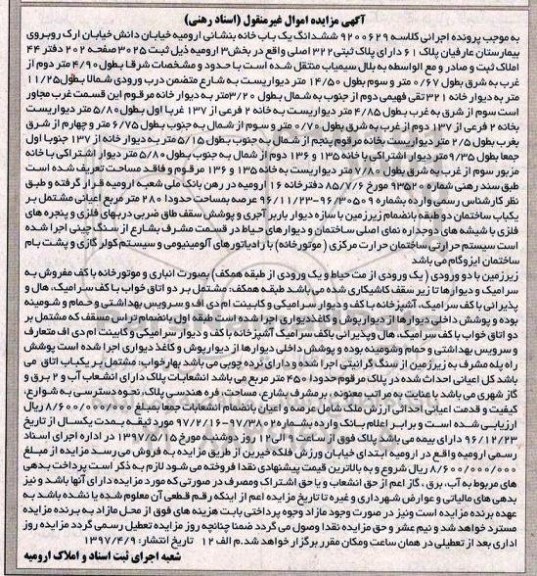 آگهی مزایده اموال غیرمنقول (اسناد رهنی)
به موجب پرونده اجرائی کلاسه ۹۲۰۰۶۲۹ ششدانگ یک باب خانه بنشانی ارومیه خیابان دانش خیابان ارک روبروی
بیمارستان عارفیان پلاک ۶۱ دارای پلاک ثبتی ۳۲۲ اصلی واقع در بخش ۳ ارومیه ذیل ثبت ۳۰۲۵ صفحه ۲۰۲ دفتر ۴۴
املاک ثبت و صادر و مع الواسطه به بلال سیمیاب منتقل شده است با حدود و مشخصات شرقا بطول ۴/۹۰ متر دوم از
غرب به شرق بطول ۰/۶۷ متر و سوم بطول ۱۴/۵۰ متر دیواریست به شارع متضمن درب ورودی شمالا بطول ۱۱/۲۵
متر به دیوار خانه ۳۲۱ تقی فهیمی دوم از جنوب به شمال بطول ۳/۲۰ متر به دیوار خانه مرقوم این قسمت غرب مجاور
است سوم از شرق به غرب بطول ۴/۸۵ متر دیواریست به خانه ۲ فرعی از ۱۳۷ غربا اول بطول ۵/۸۰ متر دیواریست
بخانه ۲ فرعی از ۱۳۷ دوم از غرب به شرق بطول ۰/۷۰ متر و سوم از شمال به جنوب بطول ۶/۷۵ متر و چهارم از شرق
بغرب بطول ۲/۵ متر دیواریست بخانه مرقوم پنجم از شمال به جنوب بطول ۵/۱۵ متر به دیوار خانه از ۱۳۷ جنوبا اول
جمعا بطول ۹/۳۵ متر دیوار اشتراکی با خانه ۱۳۵ و ۱۳۶ دوم از شمال به جنوب بطول ۵/۸۰ متر دیوار اشتراکی با خانه
مزبور سوم از غرب به شرق بطول ۷/۸۰ متر دیواریست به خانه ۱۳۵ و ۱۳۶ مرقوم و فاقد مساحت تعریف شده است
طبق سند رهنی شماره ۹۳۵۲۰ مورخ ۸۵/۷/۶ دفترخانه ۱۶ ارومیه در رهن بانک ملی شعبه ارومیه قرار گرفته و طبق
نظر کارشناس رسمی وارده بشماره ۹۶/۳۰۵۰۹-۹۶/۱۱/۲۳ عرصه بمساحت حدودا ۲۸۰ متر مربع اعیانی مشتمل بر
یکباب ساختمان دو طبقه بانضمام زیرزمین با سازه دیوار باربر آجری و پوشش سقف طاق ضربی دربهای فلزی و پنجره های
فلزی با شیشه های دوجداره نمای اصلی ساختمان و دیوارهای حیاط در قسمت مشرف بشارع از سنگ چینی اجرا شده
است سیستم حرارتی ساختمان حرارت مرکزی (موتورخانه) با رادیاتورهای آلومینیومی و سیستم کولر گازی و پشت بام
ساختمان ایزوگام می باشد
زیرزمین با دو ورودی (یک ورودی از سمت حیاط و یک ورودی از طبقه همکف) بصورت انباری و موتورخانه با کف مفروش به
سرامیک و دیوارها تا زیر سقف کاشیکاری شده می باشد طبقه همکف: مشتمل بر دو اتاق خواب با کف سرامیک، هال و
پذیرائی با کف سرامیک، آشپزخانه با کف و دیوار سرامیکی و کابینت ام دی اف و سرویس بهداشتی و حمام و شومینه
بوده و پوشش داخلی دیوارها از دیوارپوش و کاغذدیواری اجرا شده است طبقه اول بانضمام تراس مسقف که مشتمل بر
دو اتاق خواب با کف سرامیک، هال و پذیرایی باکف سرامیک آشپزخانه با کف و دیوار سرامیکی و کابینت ام دی اف متعارف
و سرویس بهداشتی و حمام و شومینه بوده و پوشش داخلی دیوارها از دیوارپوش و کاغذ دیواری اجرا شده است پوشش
راه پله مشرف به زیرزمین از سنگ گرانیتی اجرا شده و دارای نرده چوبی می باشد بهارخواب، مشتمل بر یکباب اتاق می
باشد کل اعیانی احداث شده در پلاک مرقوم حدودا ۴۵۰ متر مربع می باشد انشعابات پلاک دارای انشعاب آب و ۲ برق و
گاز شهری می باشد با عنایت به مراتب معنونه، بر مشرف بشارع، مساحت، فره هندسی پلاک، نحوه دسترسی به شوارع،
کیفیت و قدمت اعیانی احداثی ارزش ملک شامل عرصه و اعیان بانضمام انشعابات جمعا بمبلغ ۸/۶۰۰/۰۰۰/۰۰۰ ریال
ارزیابی شده است و برابر اعلام بانک وارده بشماره ۹۷/۳۸۰۲-۹۷/۲/۱۶ مورد ثقیه بمدت یکسال از تاریخ
۹۶/۱۲/۲۳ دارای بیمه می باشد پلاک فوق از ساعت ۹ الی ۱۲ روز دوشنبه مورخ ۱۳۹۷/۵/۱۵ در اداره اجرای اسناد
رسمی ارومیه واقع در ارومیه ابتدای خیابان ورزش فلکه خیرین از طریق مزایده به فروش می رسد مزایده از مبلغ
۸/۶۰۰/۰۰۰/۰۰۰ ریال شروع و به بالاترین قیمت پیشنهادی نقدا فروخته می شود لازم به ذکر است پرداخت بدهی
های مربوط به آب، برق، گاز اعم از حق انشعاب و یا حق اشتراک ومصرف در صورتی که مورد مزایده دارای آنها باشد و نیز
بدهی های مالیاتی و عوارض شهرداری و غیره تا تاریخ مزایده اعم از اینکه رقم قطعی آن معلوم شده یا نشده باشد به
عهده برنده مزایده است ونیز در صورت وجود مازاد وجوه پرداختی بابت هزینه های فوق از محل مازاد به برنده مزایده
مسترد خواهد شد و نیم عشر و حق مزایده نقدا وصول می گردد ضمنا چنانچه روز مزایده تعطیل رسمی گردد مزایده روز
اداری بعد از تعطیلی در همان ساعت ومکان مقرر برگزار خواهد شد. م الف ۱۲ تاریخ انتشار: ۱۳۹۷/۴/۹
شعبه اجرای ثبت اسناد و املاک ارومیه